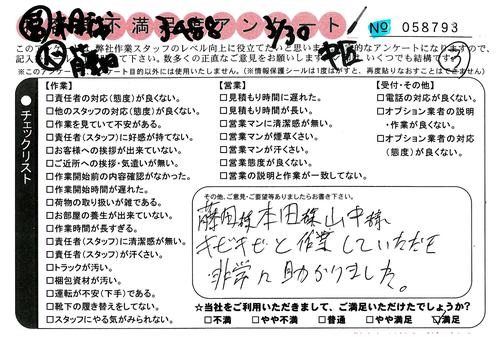 不満足度アンケート
3/30
№ 058793
このアンケートは、弊社作業スタッフのレベル向上に役立てたいと思います。
※このアンケート目的以外には使用いたしません。(※情報保護シールは1度はがすと、再度貼りなおすことはできません)
チェックリスト
【作業】
□責任者の対応(態度)が良くない。
□他のスタッフの対応(態度)が良くない。
□作業を見ていて不安がある。
□責任者(スタッフ)に好感が持てない。
□お客様への挨拶が出来ていない。
□ご近所への挨拶・気遣いが無い。
□作業開始前の内容確認がなかった。
□作業開始時間が遅れた。
□荷物の取り扱いが雑である。
□お部屋の養生が出来ていない。
□作業時間が長すぎる。
□責任者(スタッフ)に清潔感が無い。
□責任者(スタッフ)が汗くさい。
□トラックが汚い。
□梱包資材が汚い。
□運転が不安(下手)である。
□靴下の履き替えをしてない。
□スタッフにやる気がみられない。
【営業】
□見積もり時間に遅れた。
□見積もり時間が長い。
□営業マンに清潔感が無い。
□営業マンが煙草くさい。
□営業マンが汗くさい。
□営業態度が良くない。
□営業の説明と作業が一致してない。
【受付・その他】
□電話の対応が良くない。
□オプション業者の説明
・作業が良くない。
□オプション業者の対応
(態度)が良くない。
その他、ご意見・ご要望等ありましたらお書き下さい。
藤田様本田様山中様
キビキビと作業していただき
非常に助かりました。
☆当社をご利用いただきまして、ご満足いただけたでしょうか?
□不満 □やや不満 □普通 □やや満足 ☑満足